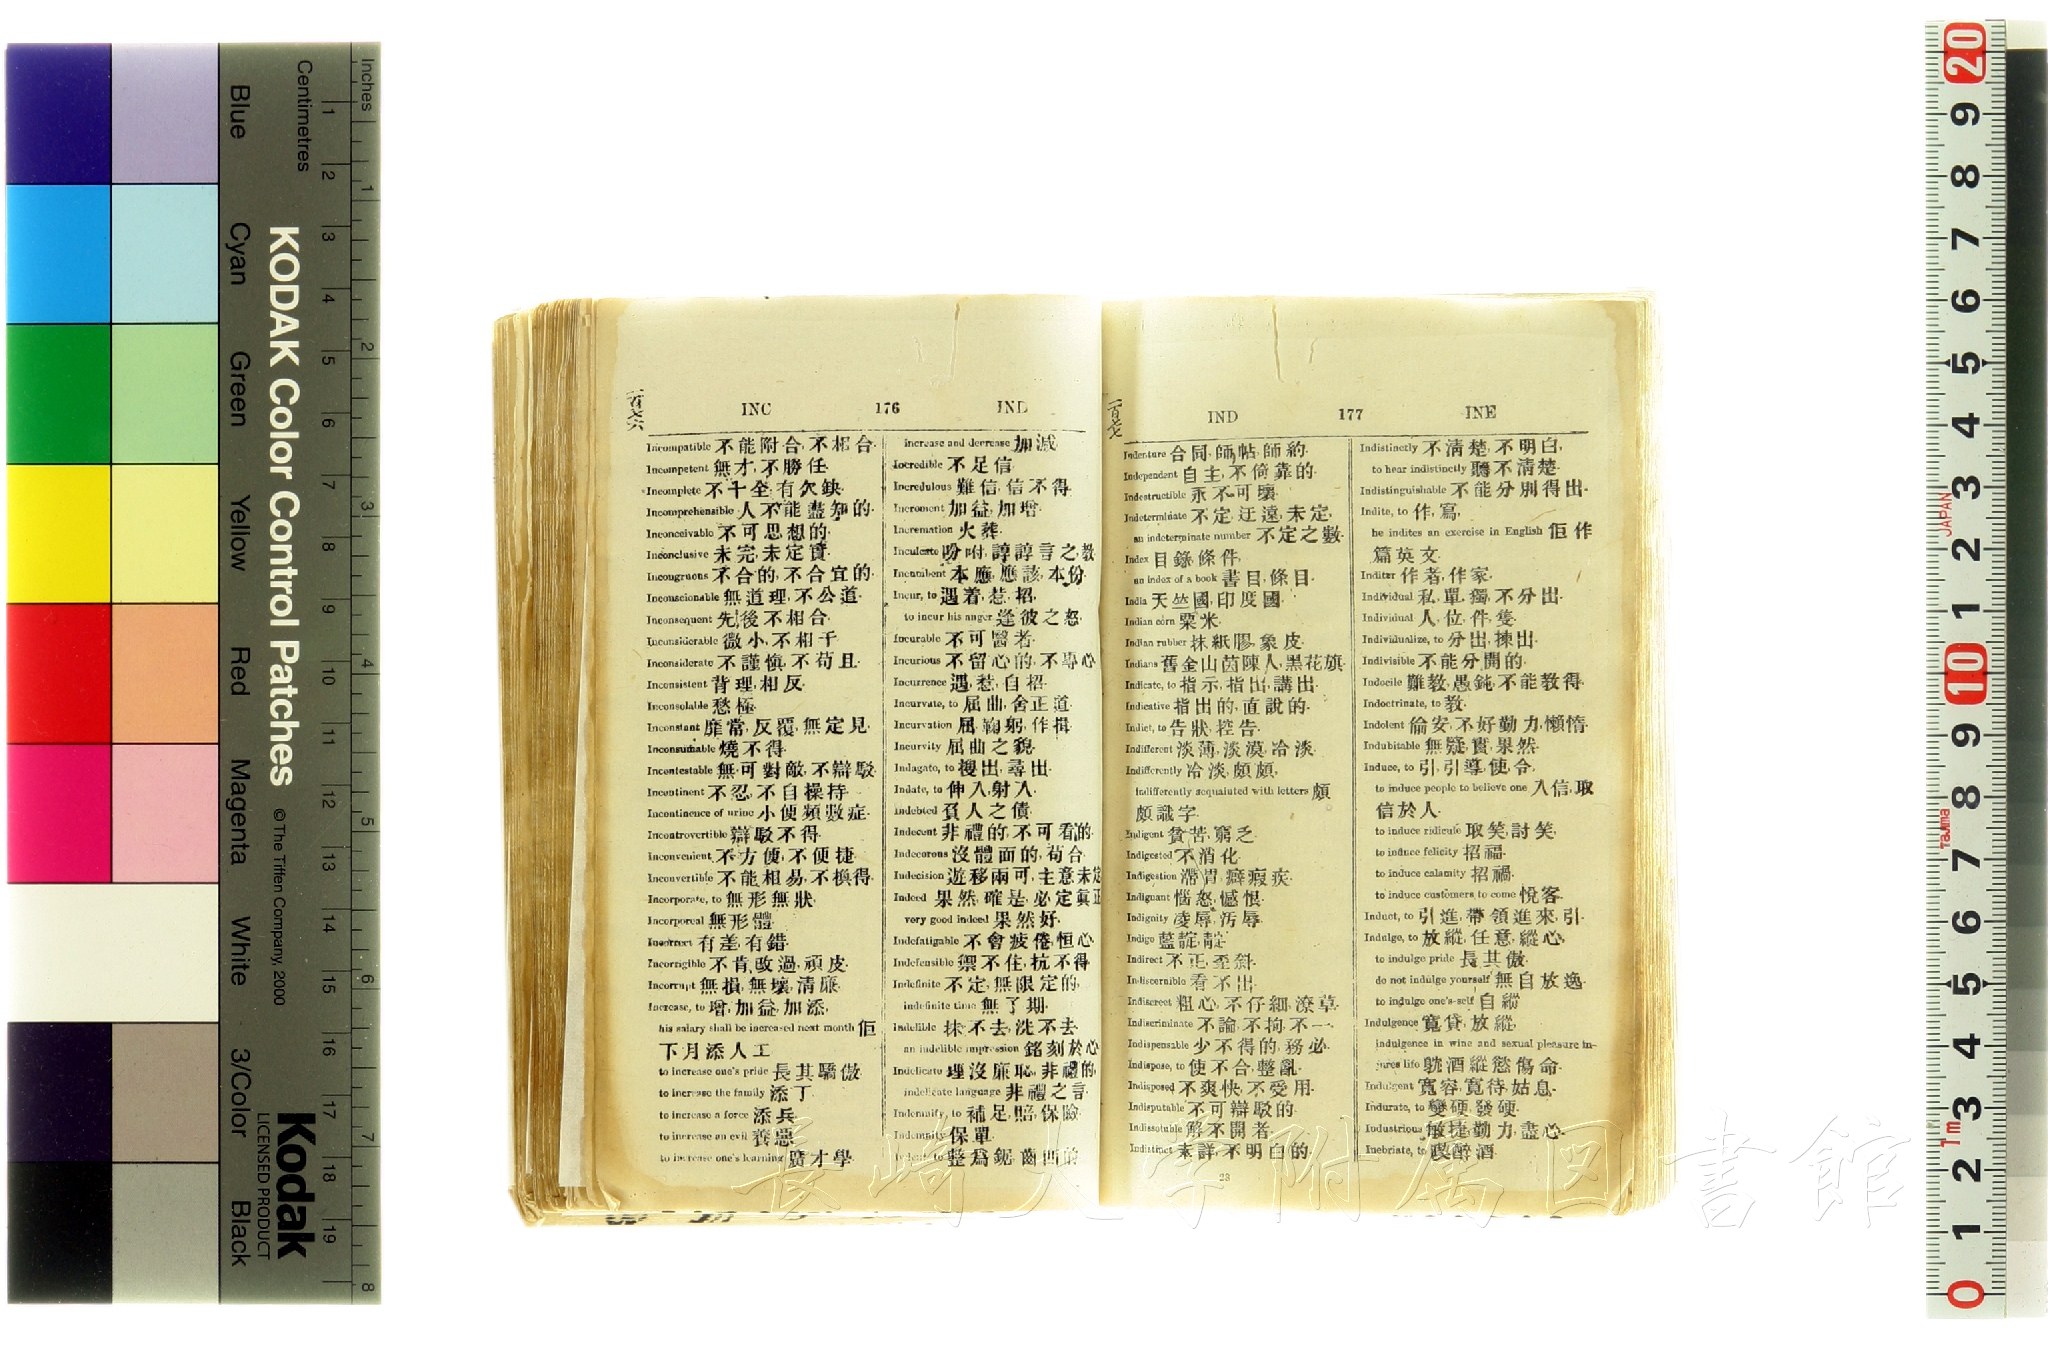 Inches
Centimetres
Blue
Cyan
Green
Yellow
Red
Magenta
White
3/Color
Black
KODAK Color Control Patches
© The Tiffen Company, 2000
Kodak
LICENSED PRODUCT
一百七六
INC 176 IND
Incompatible 不能附合, 不相合.
Incompetent 無才, 不勝任.
Incomplete 不十全, 有欠缺.
Incomprehensible 人不能盡知的.
Inconceivable 不可思想的.
Inconclusive 未完, 未定實.
Incongruous 不合的, 不合宜的.
Inconscionable 無道理, 不公道.
Inconsequent 先後不相合.
Inconsiderable 微小, 不相干.
Inconsiderate 不謹慎, 不苟且.
Inconsistent 背理, 相反.
Inconsolable 愁極.
Inconstant 靡常, 反覆, 無定見.
Inconsumable 燒不得.
Incontestable 無可對敵, 不辯駁.
Incontinent 不忍, 不自操持.
Incontinence of urine 小便頻數症.
Incontrovertible 辯駁不得.
Inconvenient 不方便, 不便捷.
Inconvertible 不能相易, 不換得.
Incorporate, to 無形無狀.
Incorporeal 無形體.
Incorrect 有差, 有錯.
Incorrigible 不肯改過, 頑皮.
Incorrupt 無損, 無壞, 清廉.
Increase, to 增, 加益, 加添,
his salary shall be increased next month 佢
下月添人工
to increase one's pride 長其驕傲
to increase the family 添丁
to increase a force 添兵
to increase an evil 養惡
to increase one's learning 廣才學
increase and decrease 加減
Incredible 不足信.
Incredulous 難信, 信不得
Increment 加益, 加增.
Incremation 火葬.
Inculcate 吩咐, 諄諄言之, 教
Incumbent 本應, 應該, 本份.
Incur, to 遇着, 惹, 招.
to incur his anger 逢彼之怒
Incurable 不可醫者.
Incurious 不留心的, 不專心
Incurrence 遇, 惹, 自招.
Incurvate, to 屈曲, 舍正道.
Incurvation 屈, 鞠躬, 作揖
Incurvity 屈曲之貌.
Indagate, to 搜出, 尋出.
Indate, to 伸入, 射入.
Indebted 負人之債.
Indecent 非禮的, 不可看的.
Indecorous 沒體面的, 苟合.
Indecision 遊移兩可, 主意未定
Indeed 果然, 確是, 必定, 真正
very good indeed 果然好.
Indefatigable 不會疲倦, 恒心
Indefensible 禦不住, 抗不得
Indefinite 不定, 無限定的,
indefinite time 無了期.
Indelible 抹不去, 洗不去
an indelible impression 銘刻於心
Indelicate 埋沒廉恥, 非禮的
indelicate language 非禮之言
Indemnify, to 補足, 賠, 保險
Indemnity 保單.
Indent, to 整爲鋸齒
一百七七
IND 177 INE
Indenture 合同, 師帖, 師約.
Independent 自主, 不倚靠的.
Indestructible 永不可壞.
Indeterminate 不定, 迂遠, 未定,
an indeterminate number 不定之數.
Index 目錄, 條件,
an index of a book 書目, 條目.
India 天竺國, 印度國.
Indian corn 粟米.
Indian rubber 抹紙膠, 象皮.
Indians 舊金山茵陳人, 黑花旗.
Indicate, to 指示, 指出, 講出.
Indicative 指出的, 直說的.
Indict, to 告狀, 控告.
Indifferent 淡薄, 淡漠, 冷淡.
Indifferently 冷淡, 頗頗,
indifferently acquainted with letters 頗
頗識字.
Indigent 貧苦, 窮乏.
Indigested 不消化.
Indigestion 滯胃, 癖瘕疾.
Indignant 惱怒, 憾恨.
Indignity 凌辱, 汚辱.
Indigo 藍靛, 靛
Indirect 不正, 歪斜.
Indiscernible 看不出.
Indiscreet 粗心, 不仔細, 潦草.
Indiscriminate 不論, 不拘, 不一.
Indispensable 少不得的, 務必.
Indispose, to 使不合, 整亂.
Indisposed 不爽快, 不受用.
Indisputable 不可辯駁的.
Indissoluble 解不開者.
Indistinct 未詳, 不明白的.
23
Indistinctly 不清楚, 不明白,
to hear indistinctly 聽不清楚.
Indistinguishable 不能分別得出.
Indite, to 作, 寫,
he indites an exercise in English 佢作
篇英文.
Inditer 作者, 作家.
Individual 私, 單, 獨, 不分出.
Individual 人, 位, 件, 隻.
Individualize, to 分出, 揀出.
Indivisible 不能分開的.
Indocile 難教, 愚鈍, 不能教得.
Indoctrinate, to 教.
Indolent 偷安, 不好勤力, 懶惰.
Indubitable 無疑, 實, 果然.
Induce, to 引, 引導, 使, 令,
to induce people to believe one 入信, 取
信於人.
to induce ridicule 取笑, 討笑,
to induce felicity 招福.
to induce calamity 招禍.
to induce customers to come 悅客.
Induct, to 引進, 帶領進來, 引.
Indulge, to 放縱, 任意, 縱心,
to indulge pride 長其傲.
do not indulge yourself 無自放逸.
to indulge one's-self 自縱
Indulgence 寬貸, 放縱,
indulgence in wine and sexual pleasure in-
jures life 躭酒縱慾傷命.
Indulgent 寬容, 寬待, 姑息.
Indurate, to 變硬, 發硬.
Industrious 敏捷, 勤力, 盡心.
Inebriate, to 醉酒
長崎大学附属図書館
JAPAN
Tajima
1m